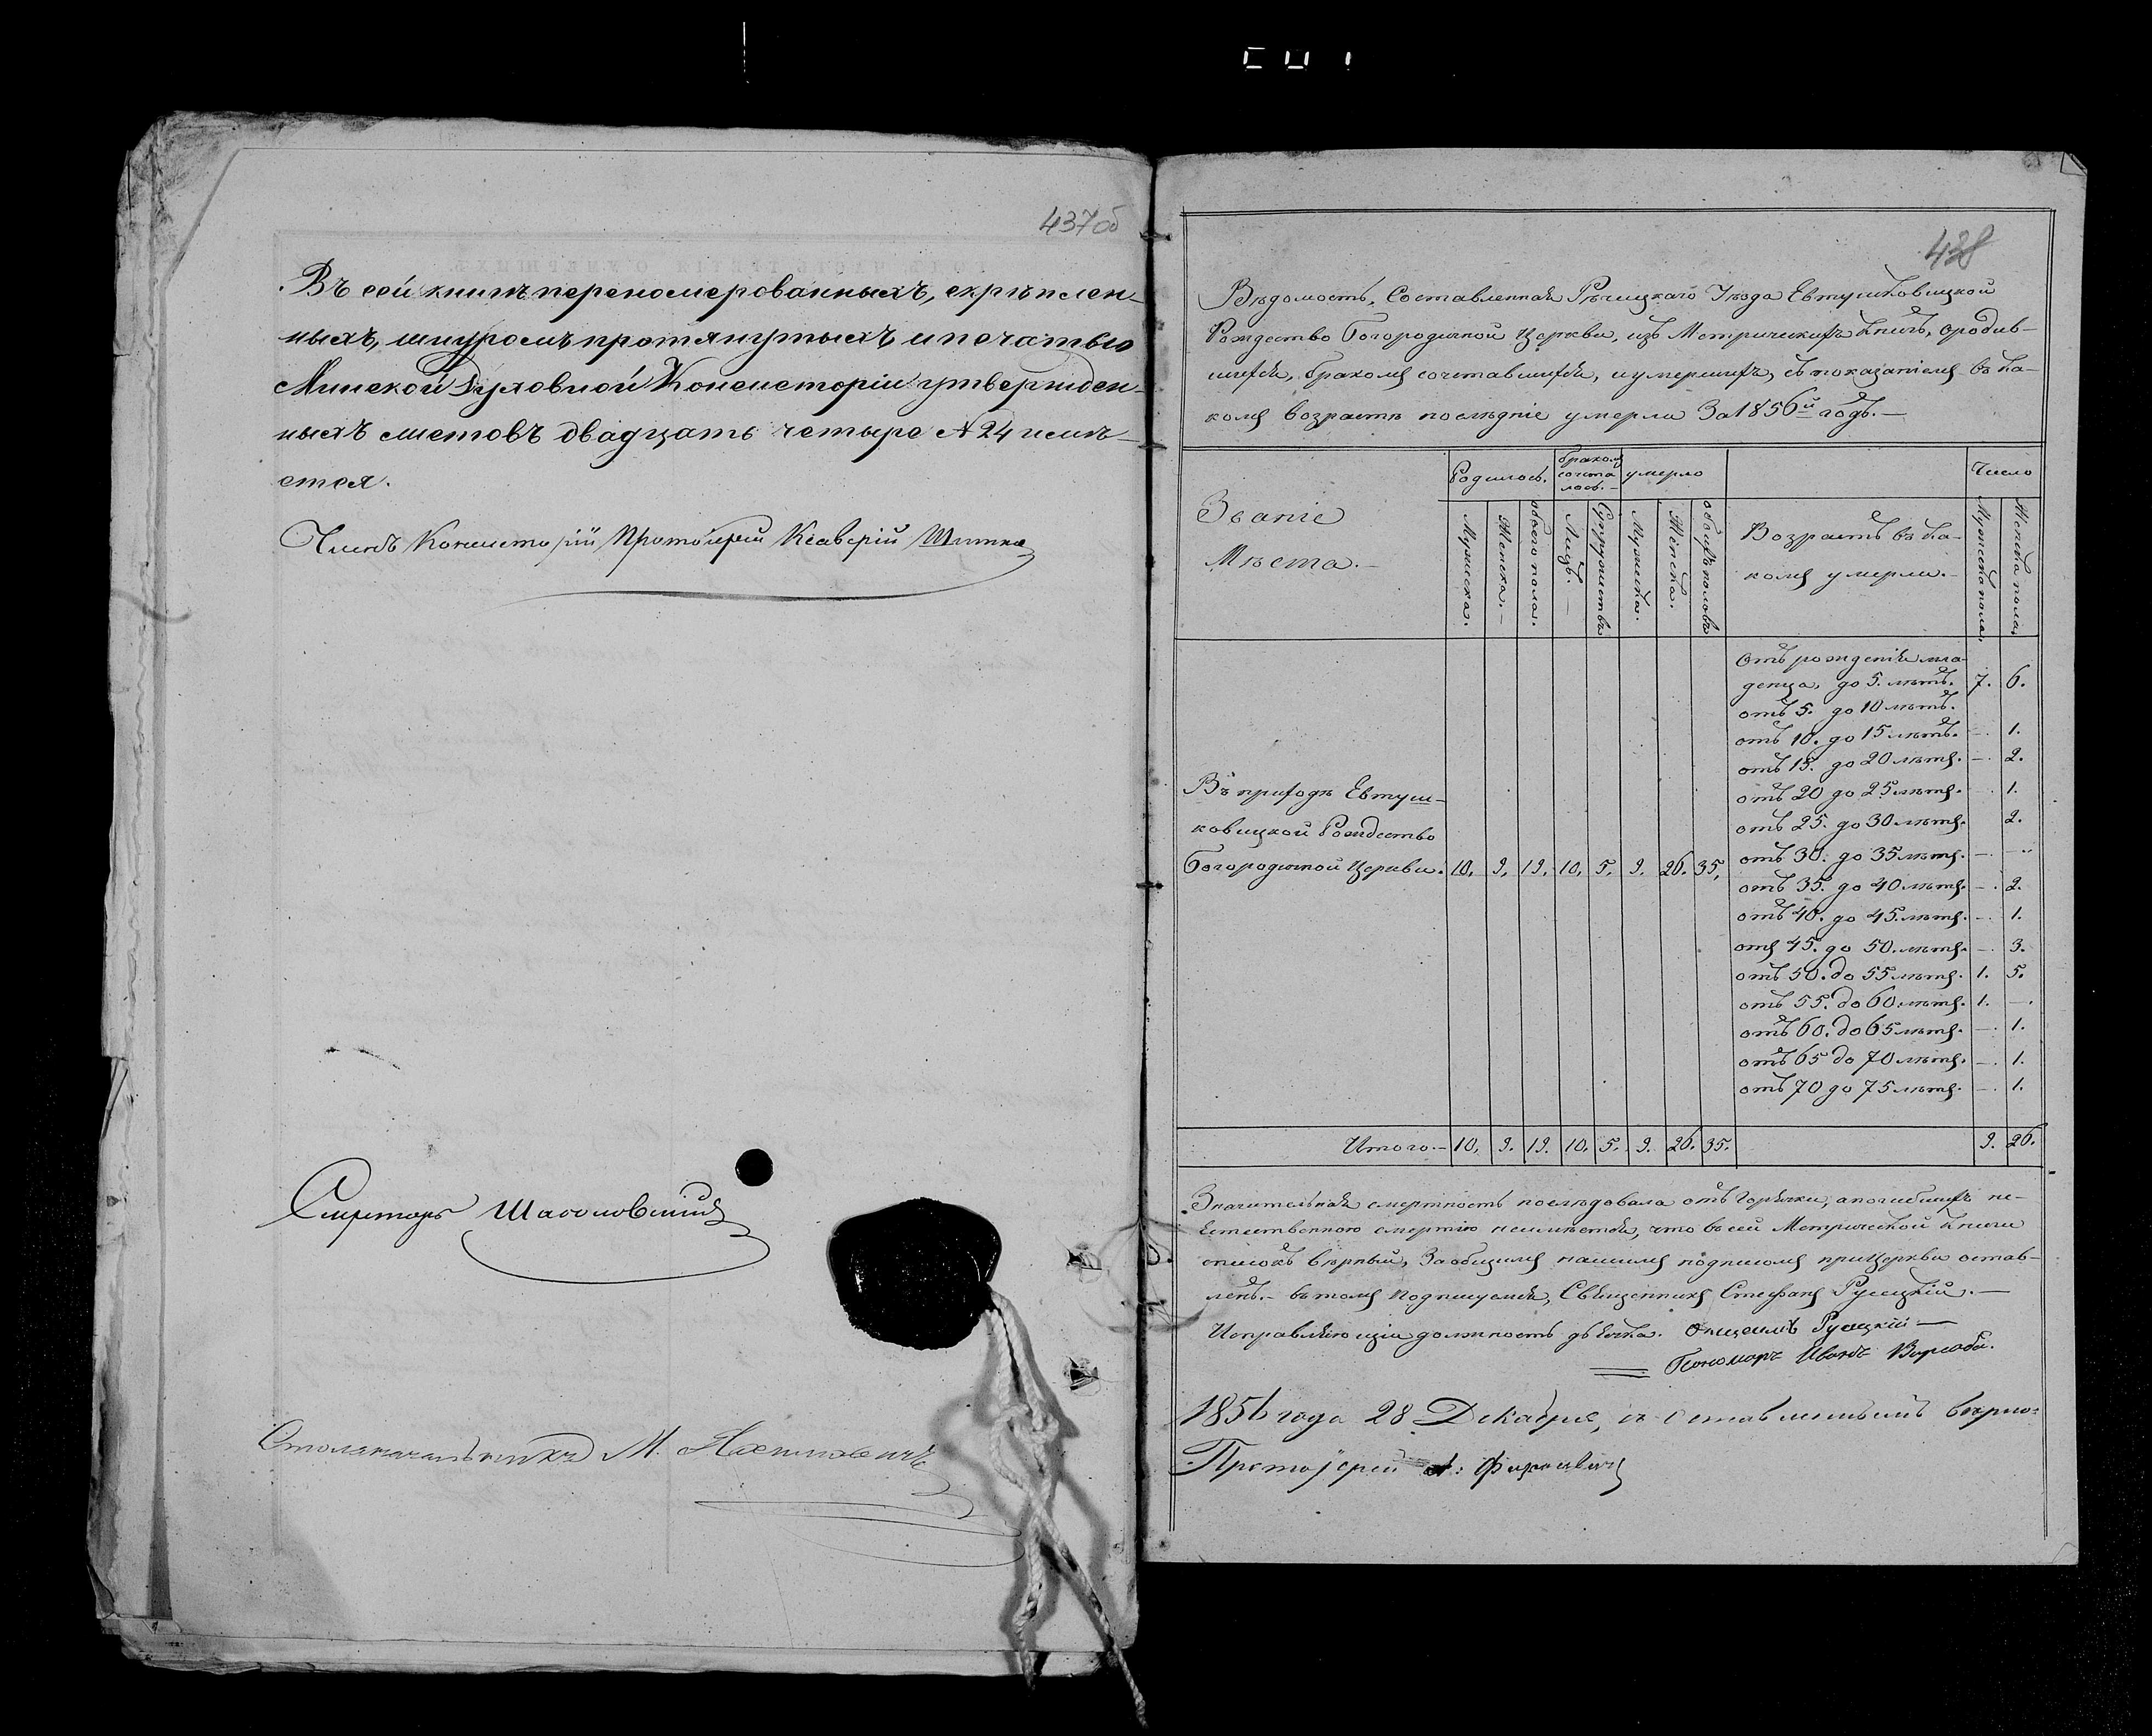 437об
Въ сей книгѣ переномерованныхъ, скрѣплен-
ныхъ, шнуромъ протянутыхъ и печатью
Минской Духовной Консисторіи утвержден-
ныхъ листовъ двадцать четыре № 24 имѣ-
ется.
Членъ Консисторіи Протоіерей Ксаверій
Секретарь
Столоначальникъ М.
438
Вѣдомость, Составленная Рѣчицкаго Уѣзда Евтушковицкой
Рождество Богородичной Церкви, изъ Метрическихъ Книгъ, о родив-
шихся, бракомъ сочетавшихся, и умершихъ, съ показаніемъ въ ка-
комъ возрастѣ послѣдніе умерли За 1856й годъ.—
Званіе
Мѣста.—
Родилось.
бракомъ
сочета
лось.—
умерло
Число
Мужеска.
Женска.—
обоего пола.
Лицъ.—
Супружествъ
Мужеска.
Женска.
обоихъ половъ
Возрастъ въ ка-
комъ умерли.—
Мужеска пола,
Женска пола,
Отъ рожденія мла-
денца, до 5. лѣтъ. 7. 6.
отъ 5. до 10 лѣтъ.
отъ 10. до 15 лѣтъ. —. 1.
отъ 15. до 20 лѣтъ. —. 2.
отъ 20 до 25 лѣтъ. —. 1.
отъ 25. до 30 лѣтъ. 2.
отъ 30. до 35 лѣтъ. —. —.
отъ 35. до 40 лѣтъ. —. 2.
отъ 40. до 45. лѣтъ. —. 1.
отъ 45. до 50. лѣтъ. —. 3.
отъ 50. до 55 лѣтъ. 1. 5.
отъ 55. до 60. лѣтъ. 1. —.
отъ 60. до 65 лѣтъ. —. 1.
отъ 65 до 70 лѣтъ. —. 1.
отъ 70 до 75 лѣтъ. —. 1.
Въ приходѣ Евтуш-
ковицкой Рождество
Богородичной Церкви. 10, 9, 19, 10, 5, 9. 26. 35,
Итого.— 10, 9. 19. 10. 5. 9. 26. 35. 9. 26.
Значительная смертность послѣдовала отъ Горячки, а погибшихъ не-
естественною смертію неимѣется, что въ сей Метрической Книги
списокъ вѣрный, За общимъ нашимъ подписомъ при Церкви остав-
ленъ.— въ томъ подписуемся, Священникъ Стефанъ Русецкій.—
Исправляющій должность дьячка.
Пономарь Иванъ
1856 года 28 Декабря, съ оставленнымъ вѣрно:
Протоіерей